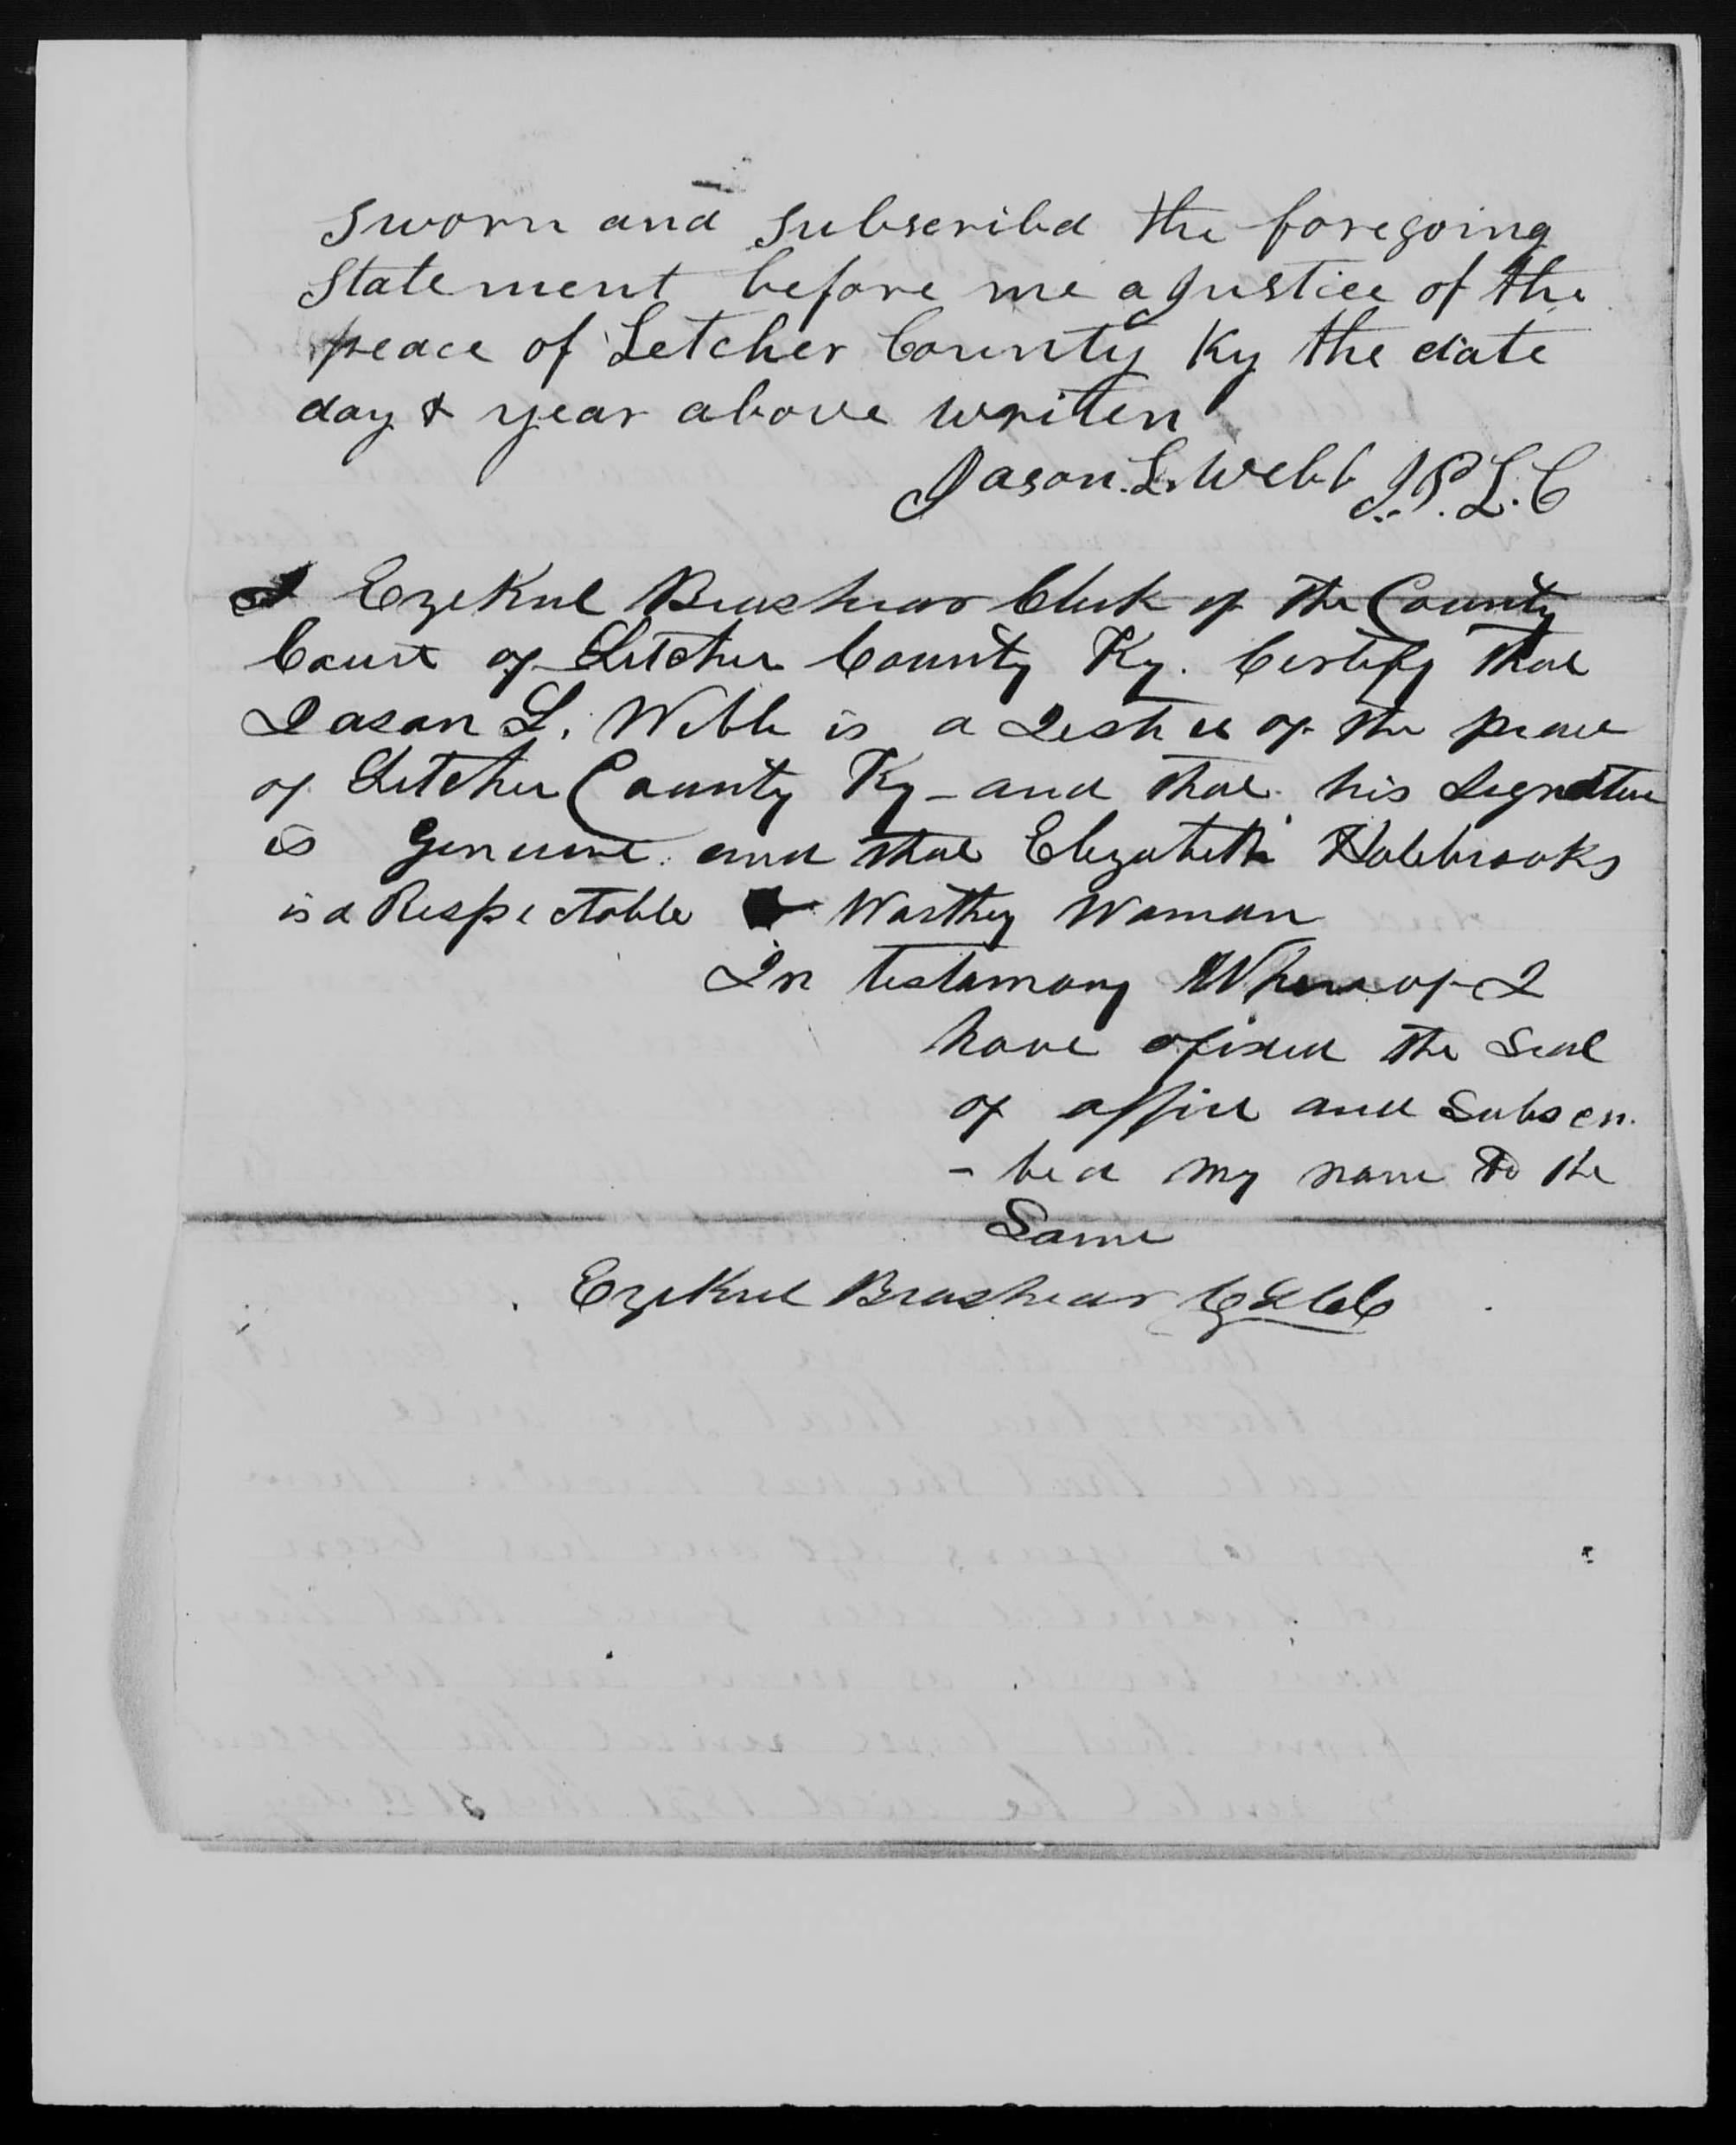 Sworn and Subscribd the foregoing
Statement before me a Justice of the
peace of Letcher County Ky the date
day & year above writen
Jason. L. Webb J. P. L. C
I Ezekiel Brashear Clerk of the County
Court of Letcher County Ky. Certify that
Jason L. Webb is a Jestice of the peace
of Letcher County Ky - and that his Signature
is Genuine and that Elizabeth Holebrooks
is a Respectable & Worthy Woman
In testamony Whereof I
have afixed the Seal
of office and Subscri
- bed my name to the
Same
Ezekiel Brashear